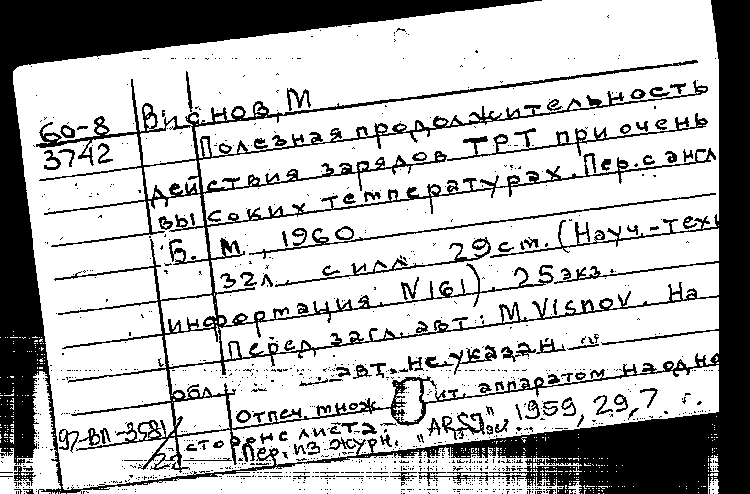 60-8 Виснов, М
3742 Полезная продолжительность
действия зарядов ТРТ при очень
высоких температурах. Пер. с англ
Б. М., 1960.
32л. с илл. 29 cm. (Науч.-техн
информация. N161). 25 экз.
Перед загл. авт: M. Visnov. На
обл. авт. не указан.
Отпеч. множ ит. аппаратом на одно
97-ВП-3581 стороне листа.
/22 Пер. из журн. "ARS J" 1959, 29, 7. г.